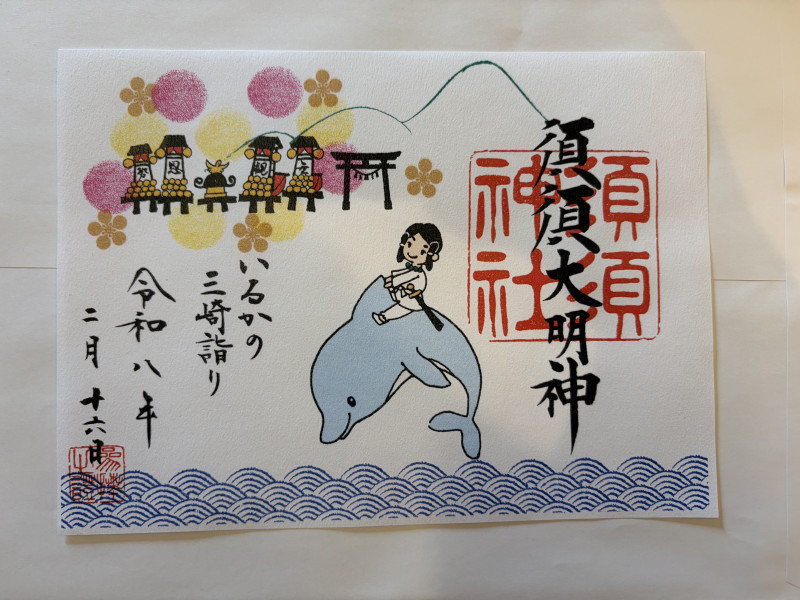 須須大明神
須須
神社
いるかの
三崎詣り
令和八年
二月 十六日